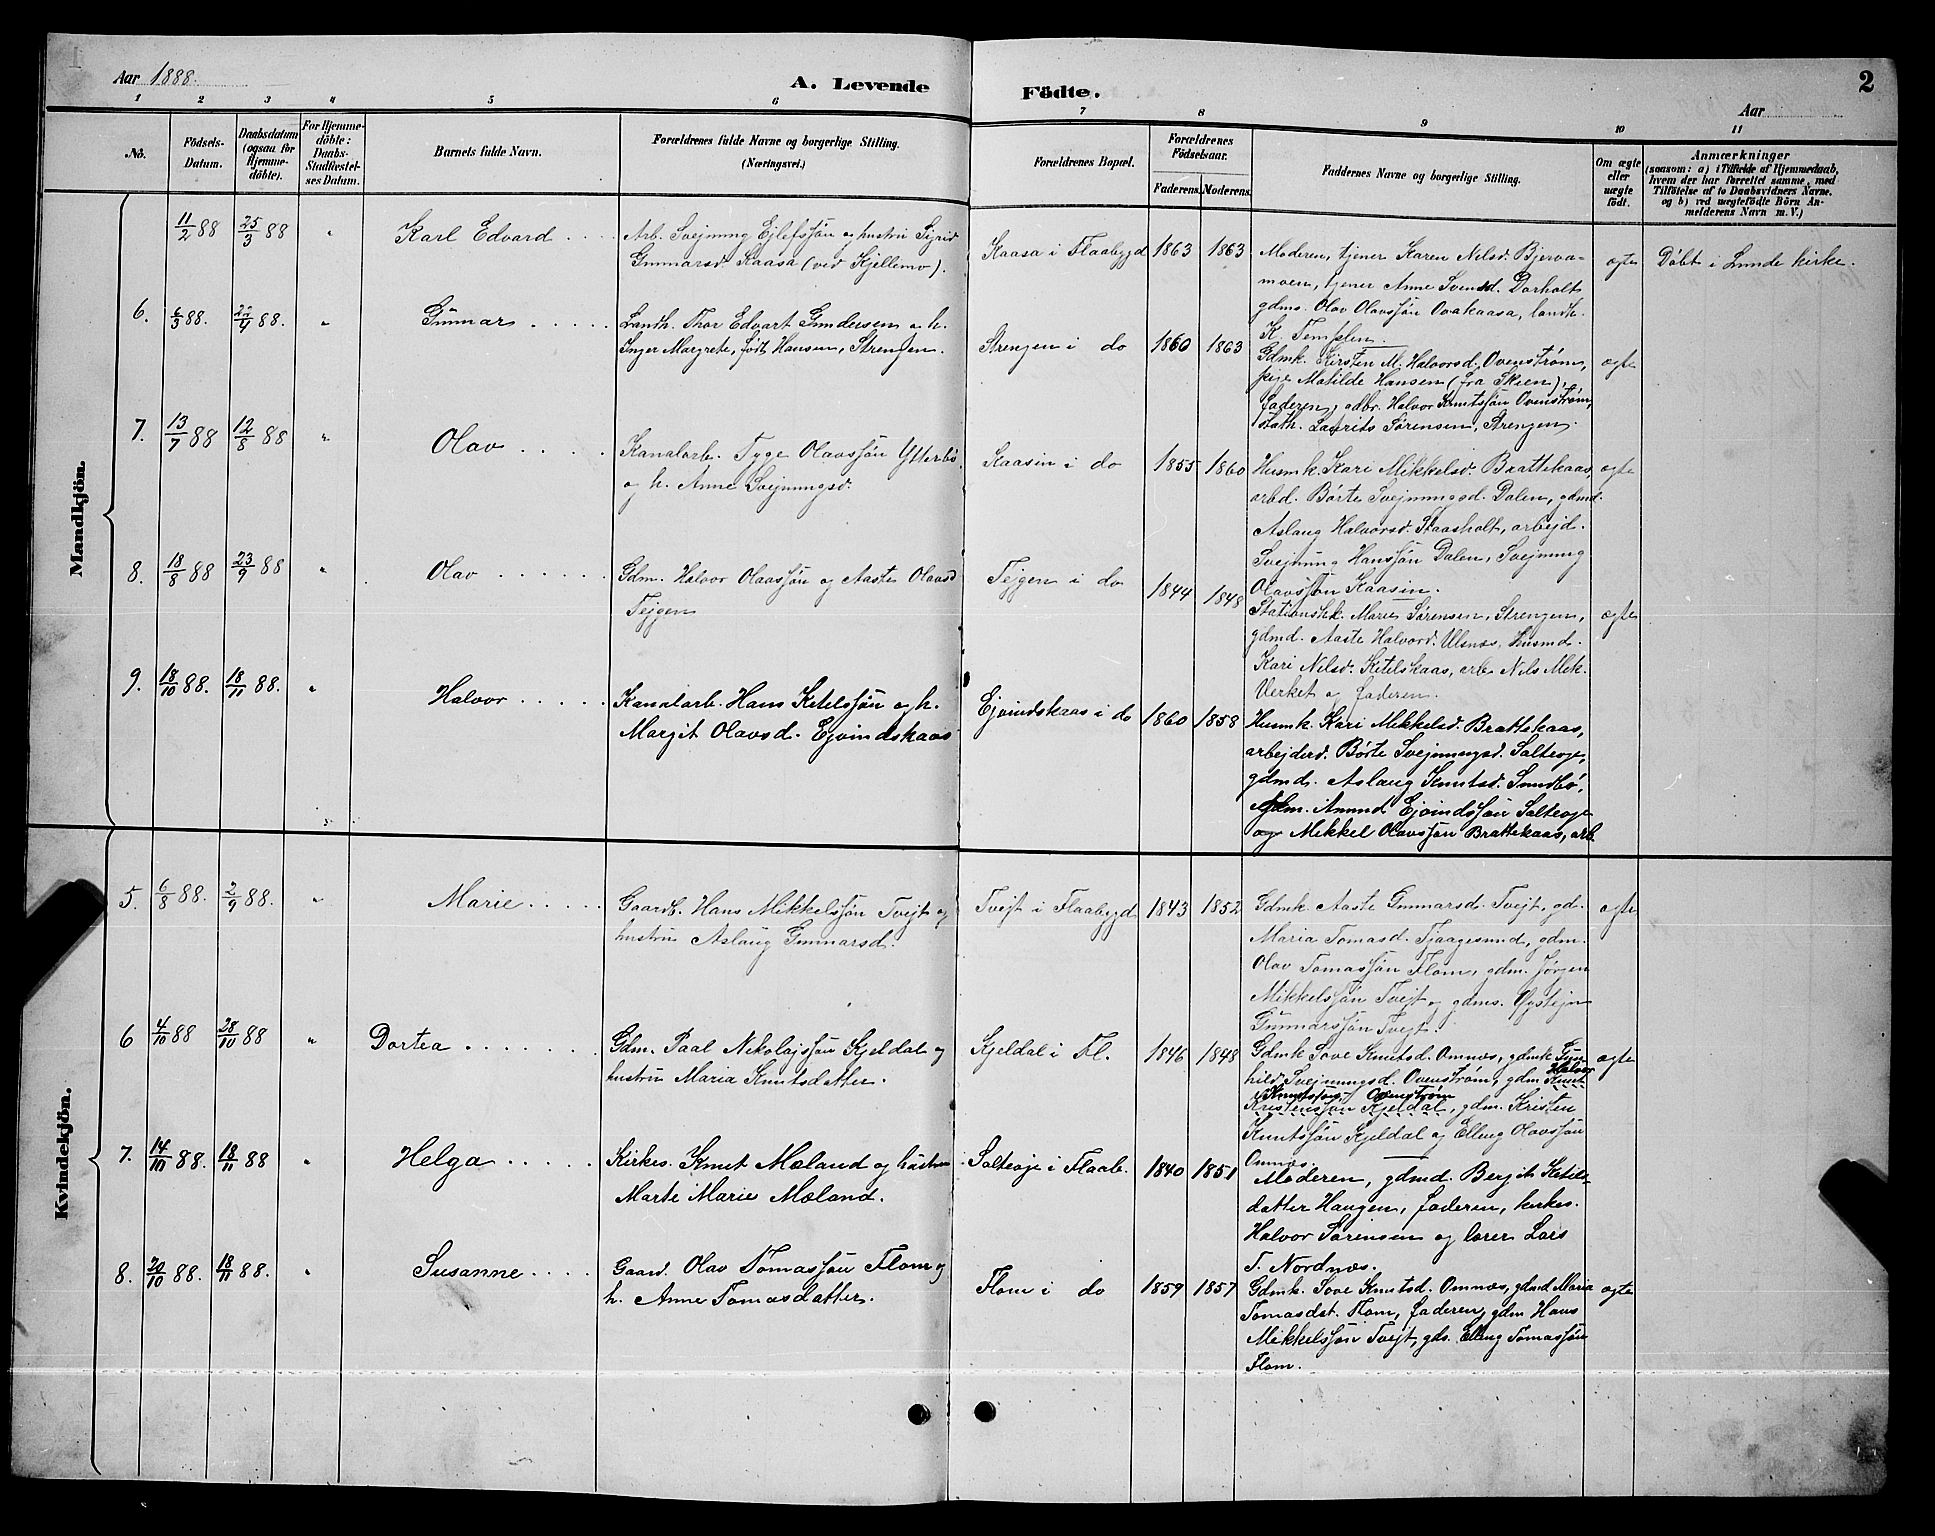 Aar 1888.
A. Levende
Födte.
Aar
2
1 2 3 4 5 6 7 8 9 10 11
No.
Födsels-
Datum.
Daabsdatum
(ogsaa for
Hjemme-
döbte).
For Hjemme-
döbte:
Daabs-
Stadfæstel-
ses Datum.
Barnets fulde Navn.
Forældrenes fulde Navne og borgerlige Stilling.
(Næringsvei.)
Forældrenes Bopæl.
Forældrenes
Födselsaar.
Faderens. Moderens.
Faddernes Navne og borgerlige Stilling.
Om ægte
eller
uægte
födt.
Anmærkninger
(saasom: a) i Tilfælde af Hjemmedaab,
hvem der har forrettet samme, med
Tilföielse af to Daabsvidners Navne.
og b) ved uægtefödte Börn An-
melderens Navn m. V.)
Mandkjön.
11/2 88 25/3 88 " Karl Edvard
Arb. Svejnung Ejlefssøn og hustru Sigrid
Gunnarsd. Kaasa (ved Kjellemo).
Kaasa i Flaabygd 1863 1863
Moderen, tjener Karen Nilsd. Bjerva-
moen, tjener Anne Svensd. Dorholt
gdms. Olav Olavssøn Ovakaasa, landh.
K. Templen.
ægte
Döbt i Lunde kirke.
6. 6/3 88. 22/4 88. " Gunnar
Landh. Thor Edvart Gundersen o. h.
Inger Margrete, født Hansen, Strengen.
Strengen i do 1860 1863
Gdmk. Kirsten M. Halvorsd. Ovenstrøm,
pige Matilde Hansen (fra Skien),
faderen, gdbr. Halvor Knutssøn Ovenstrøm,
stath. Laurits Sørensen, Strengen.
ægte
7. 13/7 88 12/8 88 " Olav
Kanalarb. Tyge Olavssøn Ytterbø
og h. Anne Svejnungsd.
Kaasin i do 1855 1860
Husmk. Kari Mikkelsd. Brattekaas,
arbd. Børte Svejnungsd. Dalen, gdmd.
Aslaug Halvorsd. Staasholt, arbejd.
Svejnung Hanssøn Dalen, Svejnung
Olavssøn Kaasin.
ægte
8. 18/8 88 23/9 88 " Olav
Gdm. Halvor Olavssøn og Aaste Olavsd
Tejgen
Tejgen i do 1844 1848
Stationshk. Marie Sørensen, Strengen,
gdmd. Aaste Halvord. Ulsnæs, husmd.
Kari Nilsd. Ketelskaas, arb. Nils Mik.
Verket o. faderen.
ægte
9. 18/10 88. 18/11 88. " Halvor
Kanalarb. Hans Ketelssøn og h.
Margit Olavsd. Ejvindskaas
Ejvindskaas i do 1860 1858
Husmk. Kari Mikkelsd. Brattekaas,
arbejderd. Børte Svejnungsd. Salteøje,
gdmd. Aslaug Knutsd. Sundbø,
Gdm. Amund Ejvindssøn Salteøje
og Mikkel Olavssøn Brattekaas, arb.
Kvindekjön.
5. 6/8 88. 2/9 88. " Marie
Gaardb. Hans Mikkelssøn Tvejt og
hustru Aslaug Gunnarsd.
Tvejt i Flaabygd 1843 1852
Gdmk. Aaste Gunnarsd. Tvejt, gd.
Maria Tomasd. Tjaagesund, gdm.
Olav Tomassøn Flom, gdm. Jørgen
Mikkelssøn Tvejt og gdms. Øystejn
Gunnarssøn Tvejt.
ægte
6 4/10 88 28/10 88 " Dortea
Gdm. Paal Nikolajssøn Kjeldal og
hustru Maria Knutsdatter.
Kjeldal i Fl. 1846 1848
Gdmk Sove Knutsd. Omnæs, gdmk Gun-
hild Svejnungsd. Ovenstrøm, gdm Knut
Halvor
Knutssøn Ovenstrøm
Kristenssøn Kjeldal, gdm. Kristen
Knutssøn Kjeldal og Elleng Olavssøn
Omnæs.
ægte
7. 14/10 88. 18/11 88 " Helga
Kirkes. Knut Mæland og hustru
Marte Marie Mæland.
Salteøje i Flaab. 1840 1851
Moderen, gdmd. Berjit Ketils-
datter Haugen, faderen, kirkes.
Halvor Sørensen og lærer Lars
T. Nordnæs.
8. 20/10 88. 18/11 88. " Susanne
Gaard. Olav Tomassøn Flom og
h. Anne Tomasdatter.
Flom i do 1859 1857
Gdmk. Sove Knutsd. Omnæs, gdmd Maria
Tomasdat. Flom, faderen, gdm Hans
Mikkelssøn Tvejt, gds. Elleng Tomassøn
Flom.
ægte